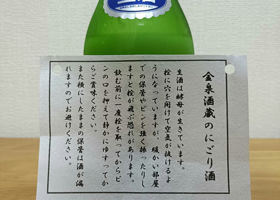 金泉酒蔵のにごり酒
生酒は酵母が生きています。
栓に穴を開けて空気が抜けるよ
うになっていますが、暖かい部屋
での保管やビンを強く振ったりし
ますと栓が飛ぶ恐れがあります。
飲む前に一度栓を取ってからビ
ンの口を押えて静かにゆすってか
らご賞味ください。
また横にしたままの保管は酒が漏
れますのでお避けください。